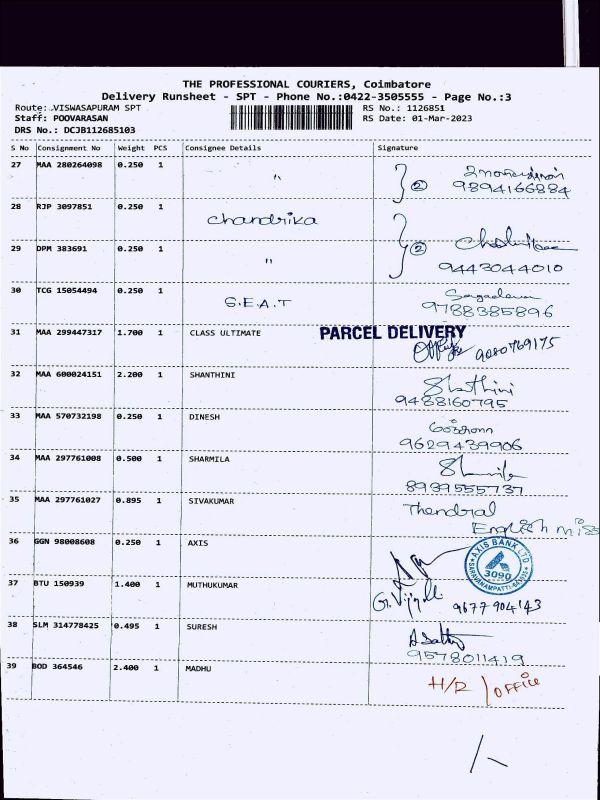 THE PROFESSIONAL COURIERS, Coimbatore
Delivery Runsheet - SPT - Phone No.:0422-3505555 - Page No.:3
Route: VISWASAPURAM SPT RS No.: 1126851
Staff: POOVARASAN RS Date: 01-Mar-2023
DRS No.: DCJB112685103
S No Consignment No Weight PCS Consignee Details Signature
27 MAA 280264098 0.250 1 " 2
9894166884
28 RJP 3097851 0.250 1 Chandrika
29 DPM 383691 0.250 1 " 2
9443044010
30 TCG 15054494 0.250 1 S.E.A.T
9788385896
31 MAA 299447317 1.700 1 CLASS ULTIMATE PARCEL DELIVERY
9080769175
32 MAA 600024151 2.200 1 SHANTHINI Shathini
9488160795
33 MAA 570732198 0.250 1 DINESH
9629439906
34 MAA 297761008 0.500 1 SHARMILA
8939555737
35 MAA 297761027 0.895 1 SIVAKUMAR Thendral
English miss
36 GGN 98008608 0.250 1 AXIS AXIS BANK LTD
3090
37 BTU 150939 1.400 1 MUTHUKUMAR G. Vijay
9677904143
38 SLM 314778425 0.495 1 SURESH
9578011419
39 BOD 364546 2.400 1 MADHU H/R / OFFICE